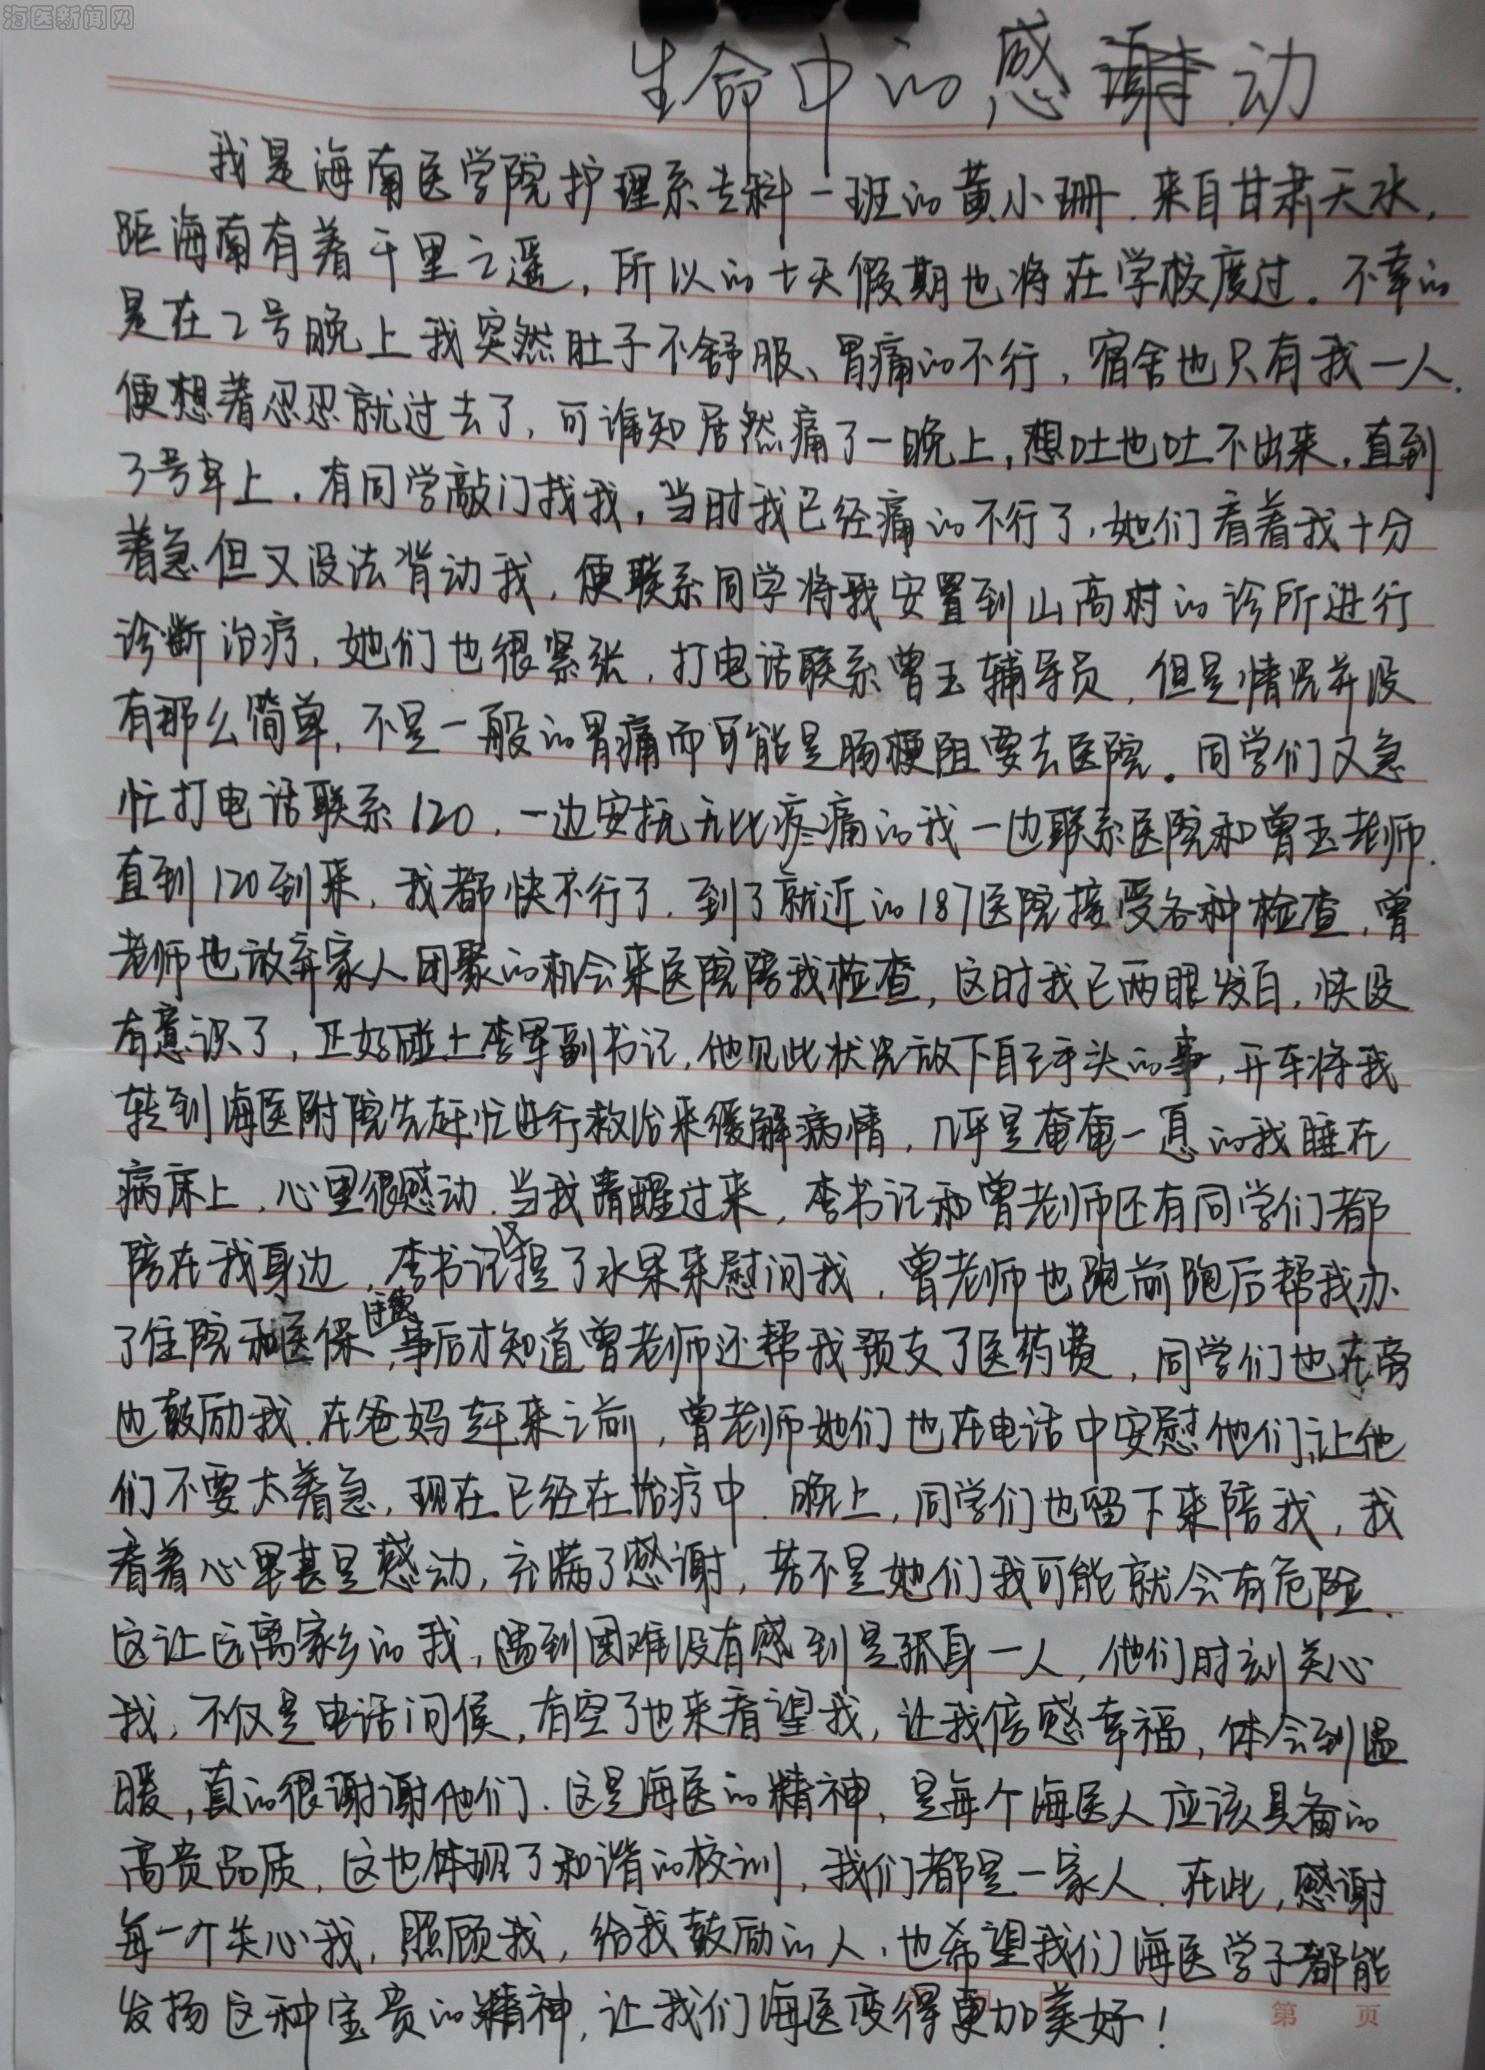 海医新闻网
生命中的感动
我是海南医学院护理系专科一班的黄小珊.来自甘肃天水,
距海南有着千里之遥,所以的七天假期也将在学校度过。不幸的
是在2号晚上我突然肚子不舒服、胃痛的不行,宿舍也只有我一人.
便想着忍忍就过去了,可谁知居然痛了一晚上,想吐也吐不出来.直到
3号早上.有同学敲门找我,当时我已经痛的不行了,她们看着我十分
着急但又没法背动我,便联系同学将我安置到山高村的诊所进行
诊断治疗,她们也很紧张,打电话联系曾玉辅导员,但是情况并没
有那么简单,不是一般的胃痛而可能是肠梗阻要去医院。同学们又急
忙打电话联系120,一边安抚无比疼痛的我一边联系医院和曾玉老师.
直到120到来,我都快不行了.到了就近的187医院接受各种检查,曾
老师也放弃家人团聚的机会来医院陪我检查,这时我已两眼发白,快没
有意识了,正好碰上李军副书记,他见此状况放下自己手头的事,开车将我
转到海医附院先赶忙进行救治来缓解病情,几乎是奄奄一息的我睡在
病床上,心里很感动.当我清醒过来,李书记和曾老师还有同学们都
陪在我身边,李书记还提了水果来慰问我,曾老师也跑前跑后帮我办
了住院和医保,事后才知道曾老师还帮我预支了医药费,同学们也在旁
边鼓励我.在爸妈赶来之前,曾老师她们也在电话中安慰他们,让他
们不要太着急,现在已经在治疗中.晚上,同学们也留下来陪我,我
看着心里甚是感动,充满了感谢,若不是她们我可能就会有危险.
这让远离家乡的我,遇到困难没有感到是孤身一人,他们时刻关心
我,不仅是电话问侯,有空了也来看望我,让我倍感幸福,体会到温
暖,真的很谢谢他们.这是海医的精神,是每个海医人应该具备的
高贵品质,这也体现了和谐的校训,我们都是一家人.在此,感谢
每一个关心我,照顾我,给我鼓励的人,也希望我们海医学子都能
发扬这种宝贵的精神,让我们海医变得更加美好!
第 页